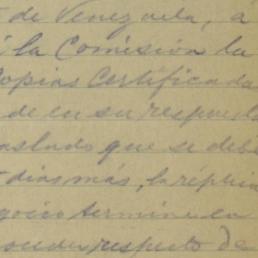 de Venezuela, á
la Comisión la
Copias Certificada
de en su respuest
raslado que se deb
dias más, la réplic
gocio termine en
respecto de